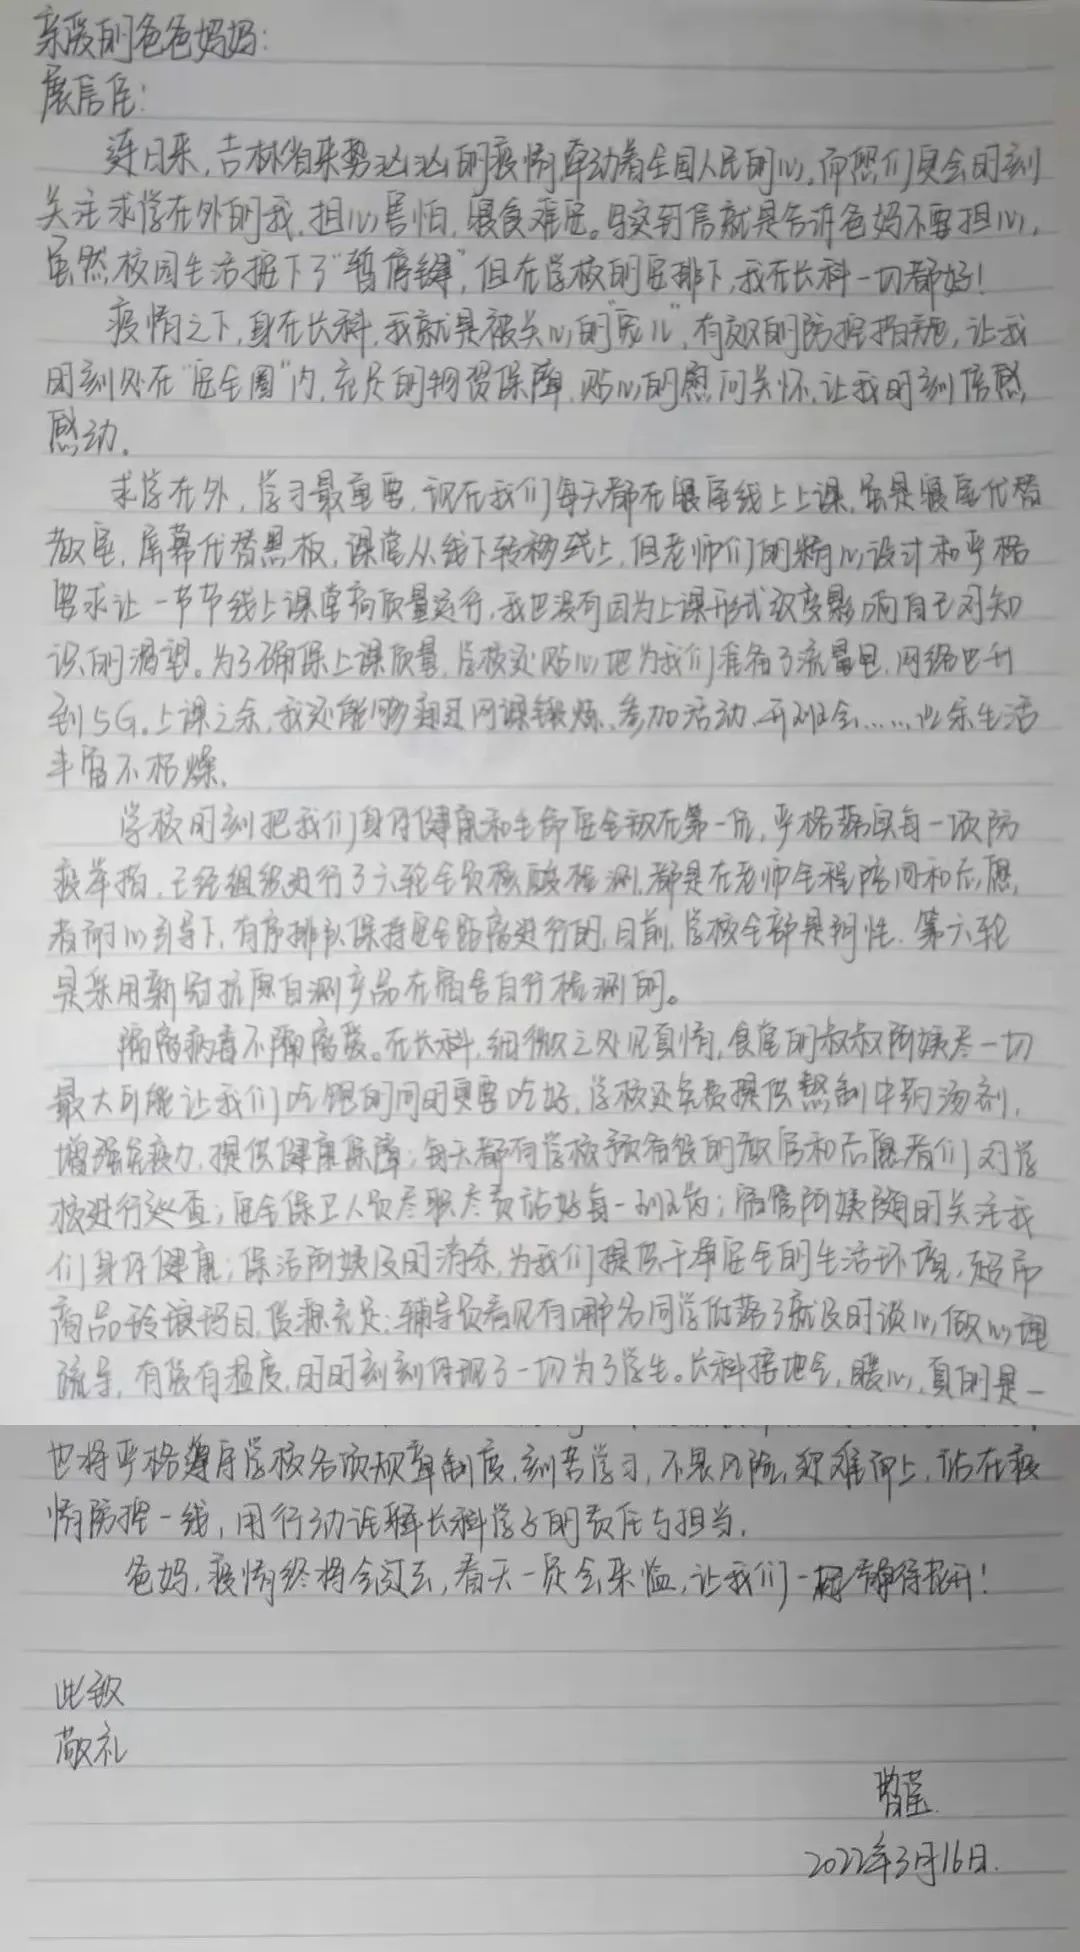 亲爱的爸爸妈妈：
展信佳：
连日来，吉林省来势汹汹的疫情，牵动着全国人民的心，而您们更会时刻
关注求学在外的我，担心害怕，寝食难安。写这封信就是告诉爸妈不要担心，
虽然校园生活按下了“暂停键”，但在学校的安排下，我在长科一切都好！
疫情之下，身在长科，我就是被关心的“宠儿”，有效的防控措施，让我
时刻处在“安全圈”内，充足的物资保障，贴心的慰问关怀，让我时刻倍感
感动。
求学在外，学习最重要，现在我们每天都在寝室线上上课，虽是寝室代替
教室，屏幕代替黑板，课堂从线下转移线上，但老师们的精心设计和严格
要求让一节节线上课堂高质量运行，我也没有因为上课形式改变影响自己对知
识的渴望。为了确保上课质量，学校还贴心地为我们准备了流量包，网络也升
到5G。上课之余，我还能够通过网课锻炼、参加活动、开班会……业余生活
丰富不枯燥。
学校时刻把我们身体健康和生命安全放在第一位，严格落实每一项防
疫举措，已经组织进行了六轮全员核酸检测，都是在老师全程陪同和志愿
者耐心引导下，有序排队保持安全距离进行的，目前，学校全部是阴性，第六轮
是采用新冠抗原自测产品在宿舍自行检测的。
隔离病毒不隔离爱。在长科，细微之处见真情，食堂的叔叔阿姨尽一切
最大可能让我们吃饱的同时更要吃好，学校还免费提供熬制中药汤剂，
增强免疫力，提供健康保障；每天都有学校预备役的教官和志愿者们对学
校进行巡查；安全保卫人员尽职尽责站好每一班岗；宿管阿姨随时关注我
们身体健康；保洁阿姨及时消杀，为我们提供干净安全的生活环境，超市
商品玲琅玛目，货源充足；辅导员看见有哪名同学低落了就及时谈心，做心理
疏导，有爱有温度，时时刻刻体现了一切为了学生。长科接地气，暖心，真的是一
也将严格遵守学校各项规章制度，刻苦学习，不畏风险，迎难而上，站在疫
情防控一线，用行动诠释长科学子的责任与担当。
爸妈，疫情终将会过去，春天一定会来临，让我们一起静待花开！
此致
敬礼
2022年3月16日